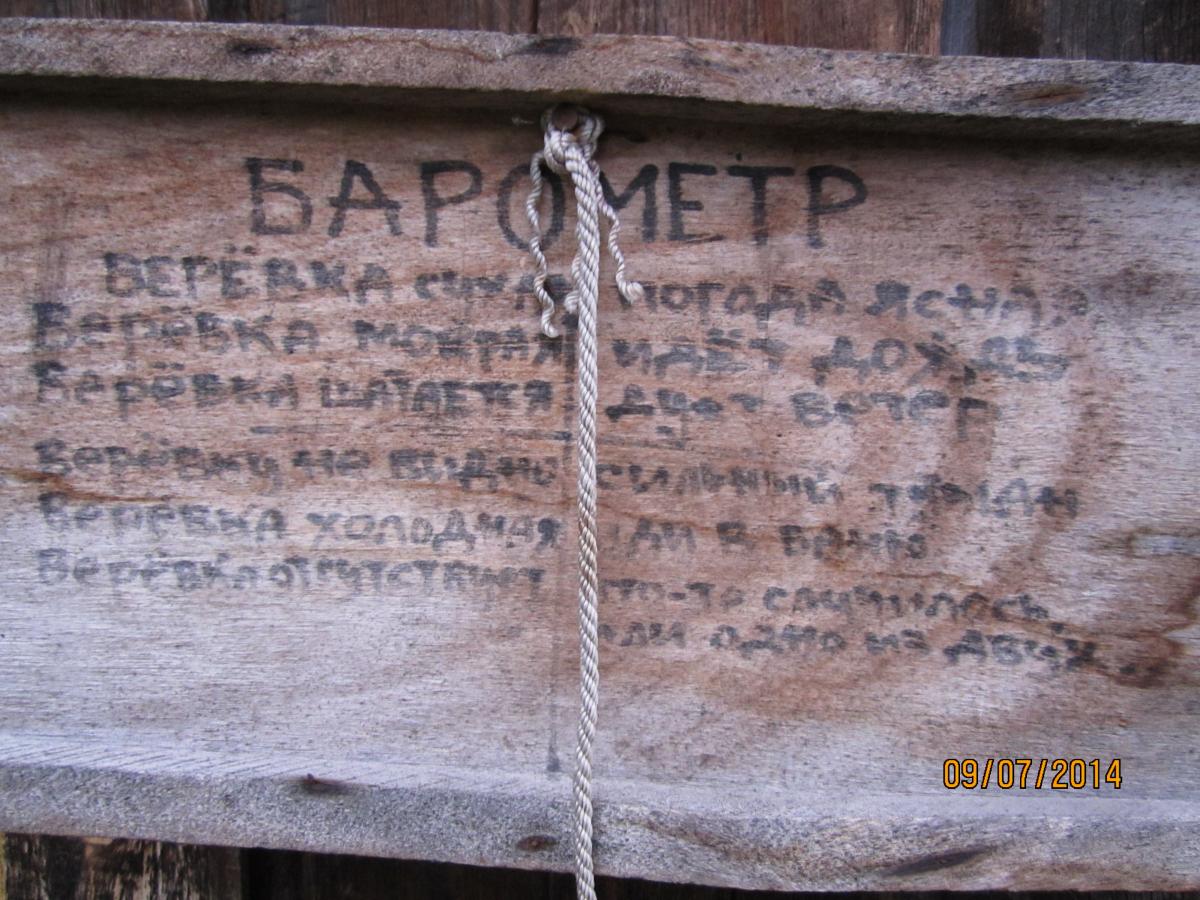 БАРОМЕТР
ВЕРЁВКА сухая погода ясная
Верёвка мокрая идёт дождь
Верёвка шатается дует ветер
Верёвку не видно сильный туман
Верёвка холодная иди в баню
Верёвка отсутствует что-то случилось,
одно из двух.
09/07/2014